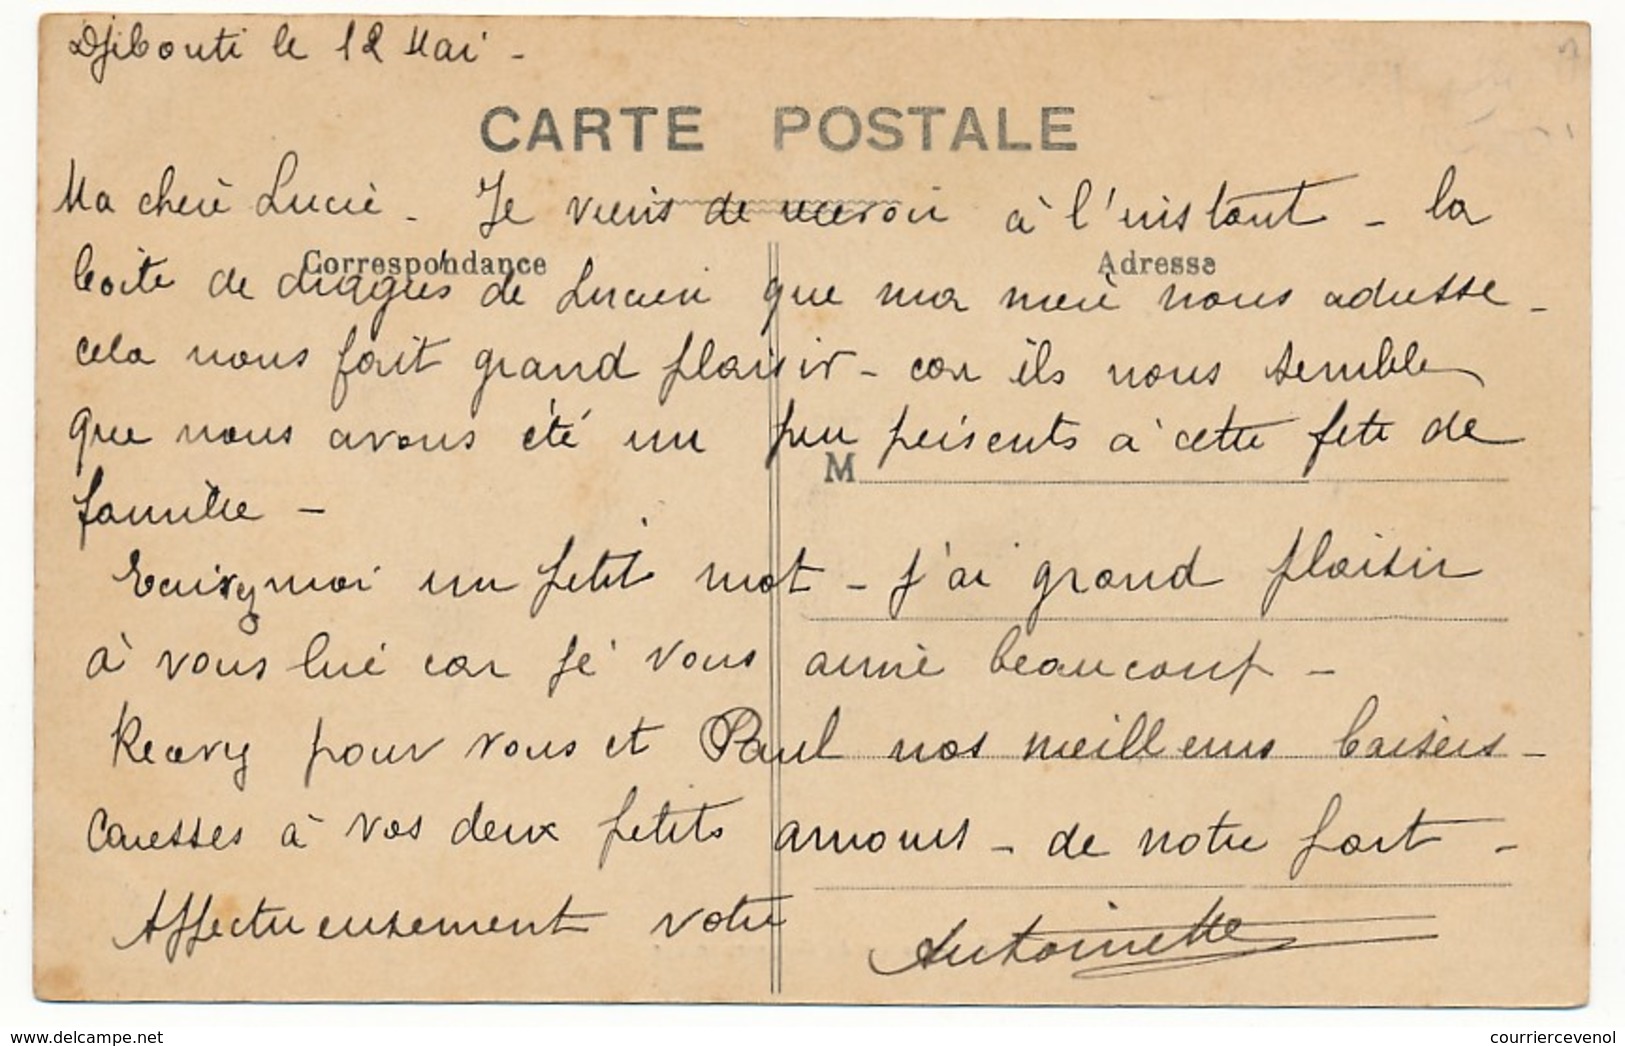 Djibouti le 12 Mai -
CARTE POSTALE
Ma cheré Lucie - Je viens de recevoir à l'instant - la
Correspondance
Adresse
boite de dragées de Lucien que ma mere nous adresse -
cela nous fait grand plaisir - car ils nous semble
que nous avons été un peu présents à cette fete de
M
famille -
Ecrivez moi un petit mot - j'ai grand plaisir
à vous lire car je vous aime beaucoup -
Recevez pour vous et Paul nos meilleurs baisers -
Caresses à vos deux petits amours - de notre part -
Affectueusement votre
Antoinette
www.delcampe.net
courriercevenol